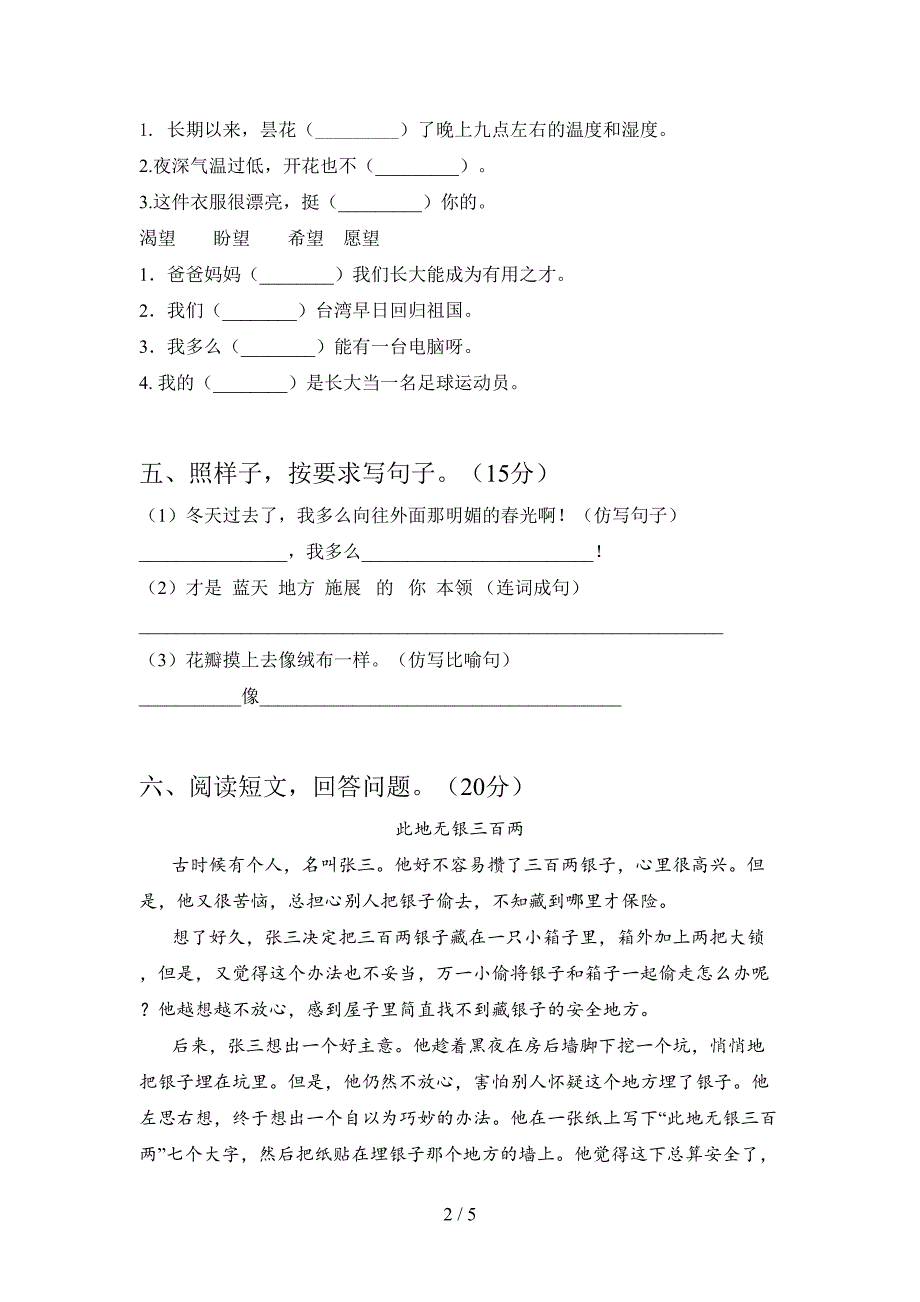 1. 长期以来，昙花（_________）了晚上九点左右的温度和湿度。
2.夜深气温过低，开花也不（_________）。
3.这件衣服很漂亮，挺（_________）你的。
渴望 盼望 希望 愿望
1．爸爸妈妈（________）我们长大能成为有用之才。
2．我们（________）台湾早日回归祖国。
3．我多么（________）能有一台电脑呀。
4. 我的（________）是长大当一名足球运动员。
五、照样子，按要求写句子。（15分）
（1）冬天过去了，我多么向往外面那明媚的春光啊！（仿写句子）
________________，我多么_________________________！
（2）才是 蓝天 地方 施展 的 你 本领 （连词成句）
_______________________________________________________________
（3）花瓣摸上去像绒布一样。（仿写比喻句）
___________像_______________________________________
六、阅读短文，回答问题。（20分）
此地无银三百两
古时候有个人，名叫张三。他好不容易攒了三百两银子，心里很高兴。但
是，他又很苦恼，总担心别人把银子偷去，不知藏到哪里才保险。
想了好久，张三决定把三百两银子藏在一只小箱子里，箱外加上两把大锁
，但是，又觉得这个办法也不妥当，万一小偷将银子和箱子一起偷走怎么办呢
？他越想越不放心，感到屋子里简直找不到藏银子的安全地方。
后来，张三想出一个好主意。他趁着黑夜在房后墙脚下挖一个坑，悄悄地
把银子埋在坑里。但是，他仍然不放心，害怕别人怀疑这个地方埋了银子。他
左思右想，终于想出一个自以为巧妙的办法。他在一张纸上写下“此地无银三百
两”七个大字，然后把纸贴在埋银子那个地方的墙上。他觉得这下总算安全了，
2 / 5